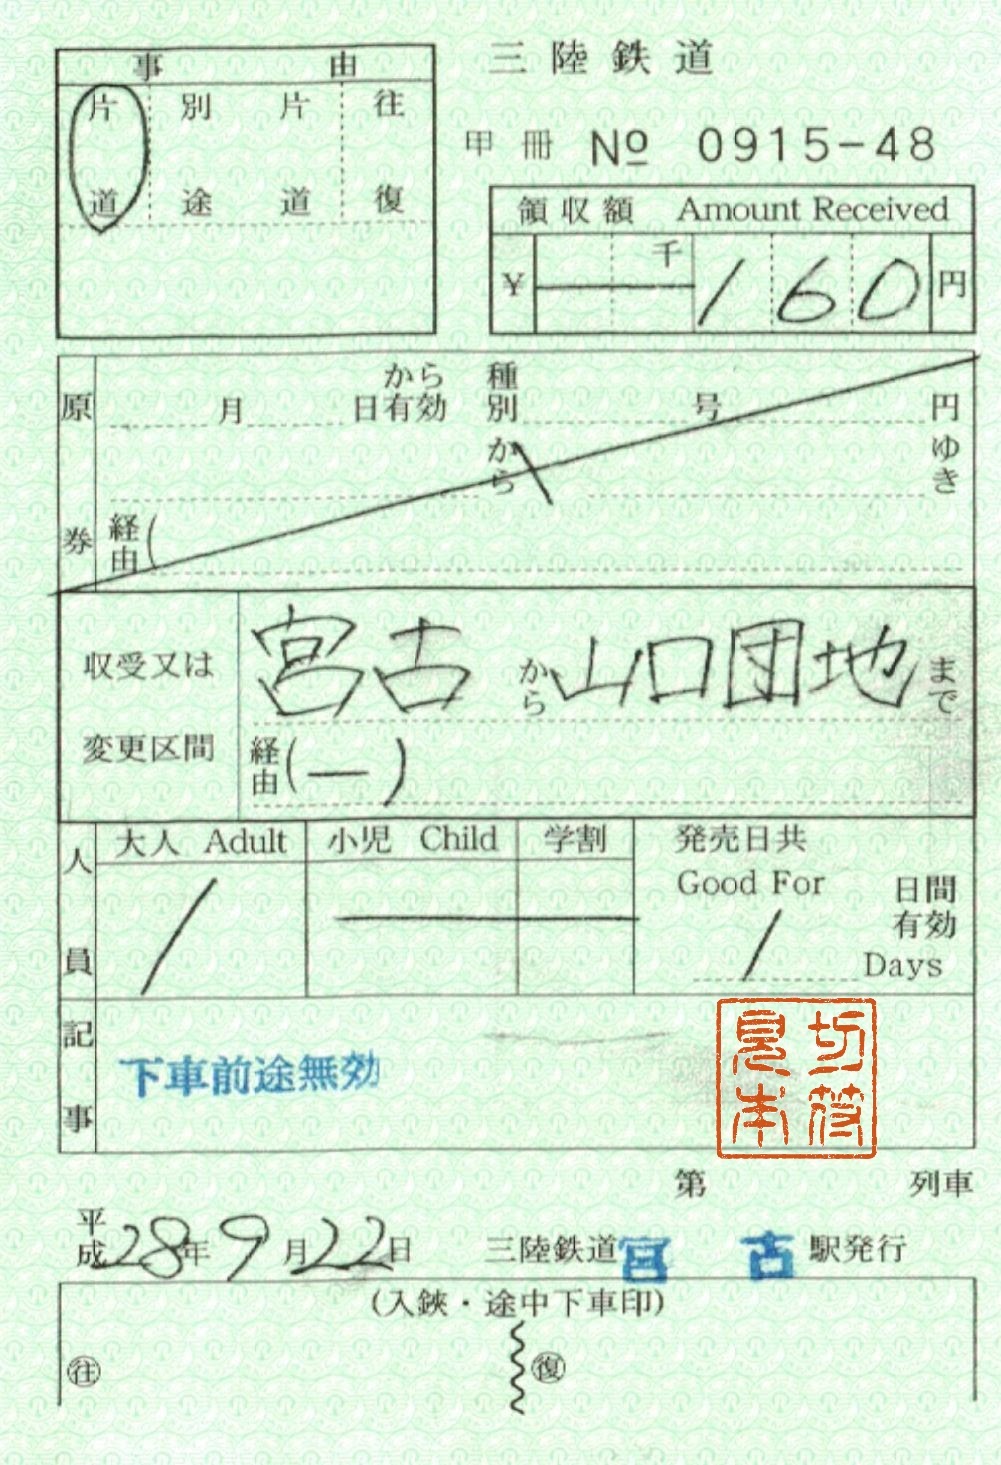 三陸鉄道
事由
片道 別途 片道 往復
甲冊 № 0915-48
領収額 Amount Received
¥ 千 160 円
原券
月 日から有効 種別 号 円
から ゆき
経由(
収受又は変更区間
宮古から山口団地まで
経由(―)
人員
大人 Adult 小児 Child 学割 発売日共
Good For 日間有効
1 1 Days
記事
下車前途無効
見本 切符
第 列車
平成28年9月22日 三陸鉄道宮古駅発行
(入鋏・途中下車印)
㊟往 復